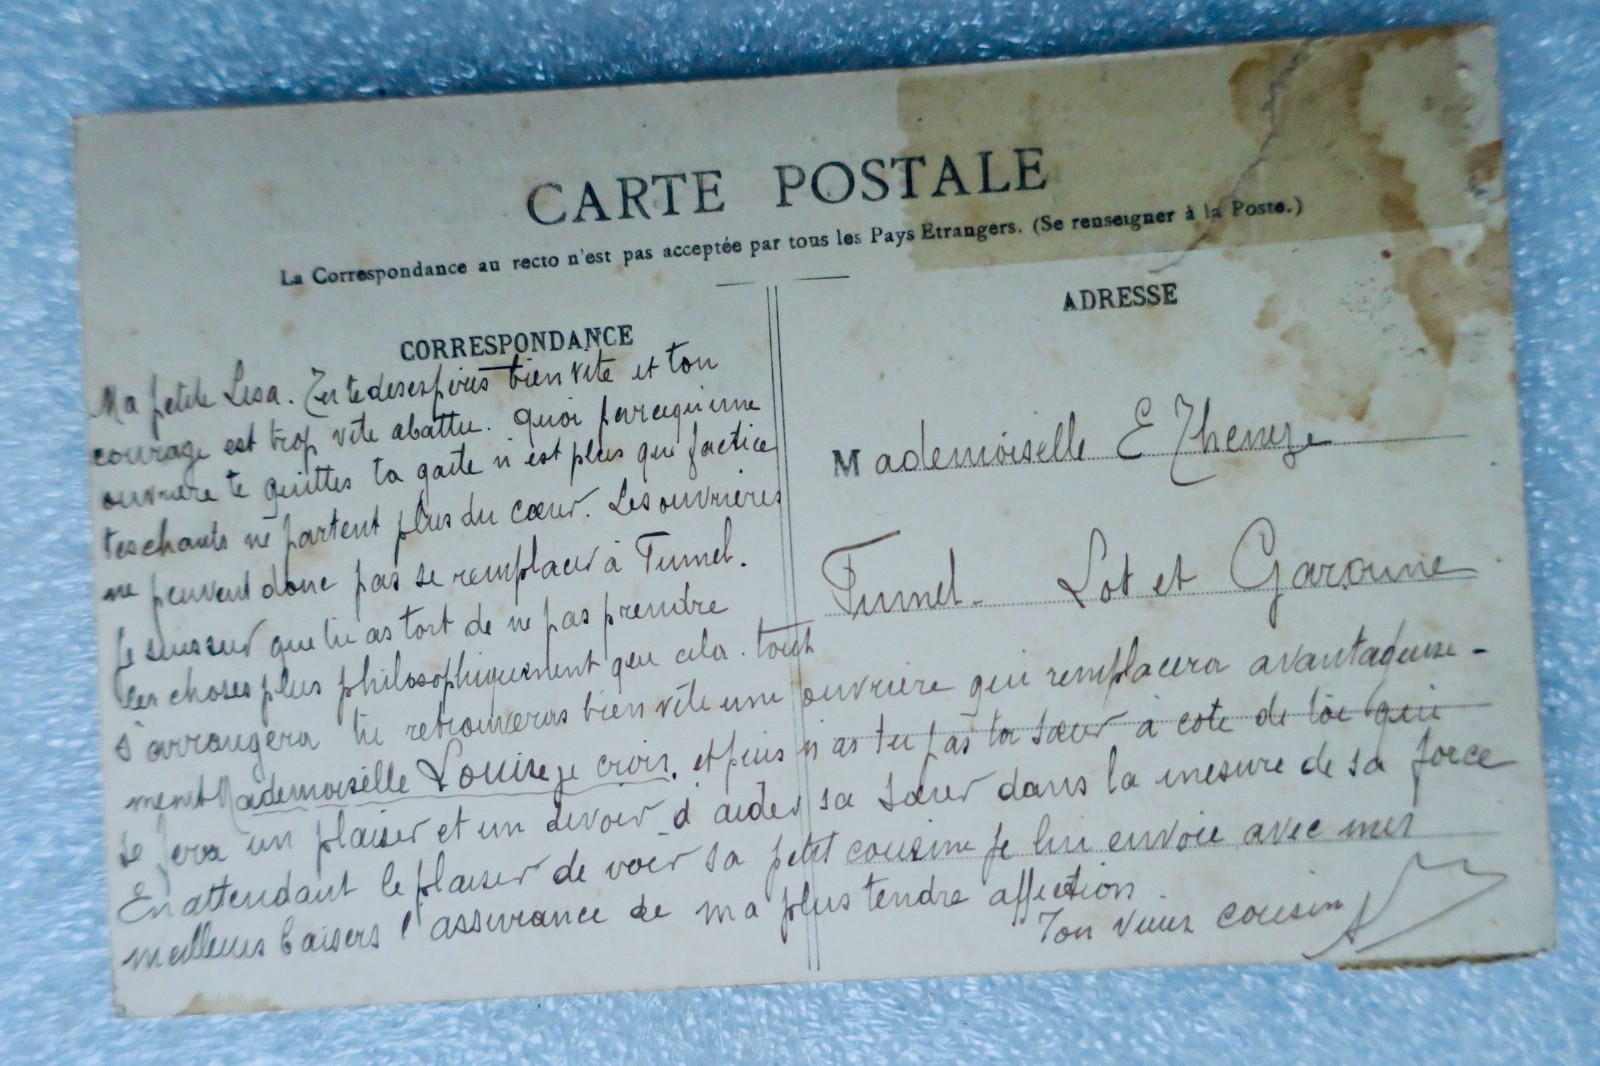 CARTE POSTALE
La Correspondance au recto n'est pas acceptée par tous les Pays Etrangers. (Se renseigner à la Poste.)
CORRESPONDANCE
ADRESSE
Ma petite Lisa. Tu te desespères bien vite et ton
courage est trop vite abattu. Quoi parcequ'une
ouvriere te quittes ta gaite n'est plus que factice
tes chants ne partent plus du cœur. Les ouvrières
ne peuvent donc pas se remplacer à Fumel.
Je suis sur que tu as tort de ne pas prendre
les choses plus philosophiquement que cela. tout
s'arrangera tu retrouveras bien vite une ouvriere qui remplacera avantageuse-
ment Mademoiselle Louise je crois. et puis n'as tu pas ta sœur à cote de toi qui
se fera un plaisir et un devoir d'aider sa sœur dans la mesure de sa force
En attendant le plaisir de voir sa petit cousine je lui envoie avec mes
meilleurs baisers l'assurance de ma plus tendre affection.
Ton vieux cousin
Mademoiselle E
Fumel. Lot et Garonne